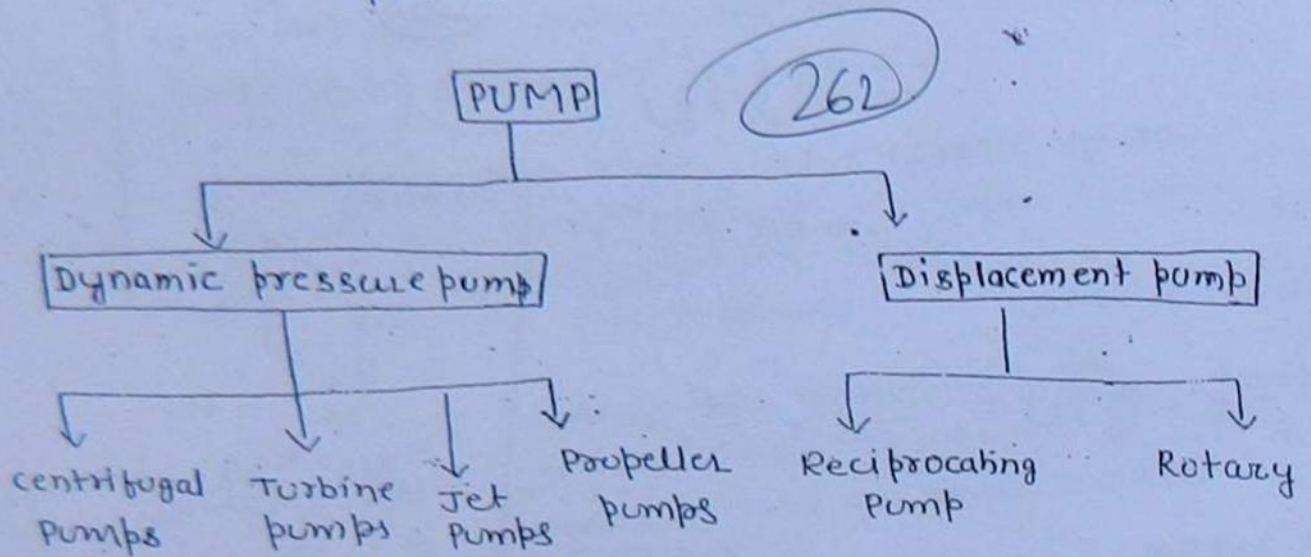 PUMP
262
Dynamic pressure pump
Displacement pump
centrifugal
pumps
Turbine
pumps
Jet
pumps
Propeller
pumps
Reciprocating
pump
Rotary